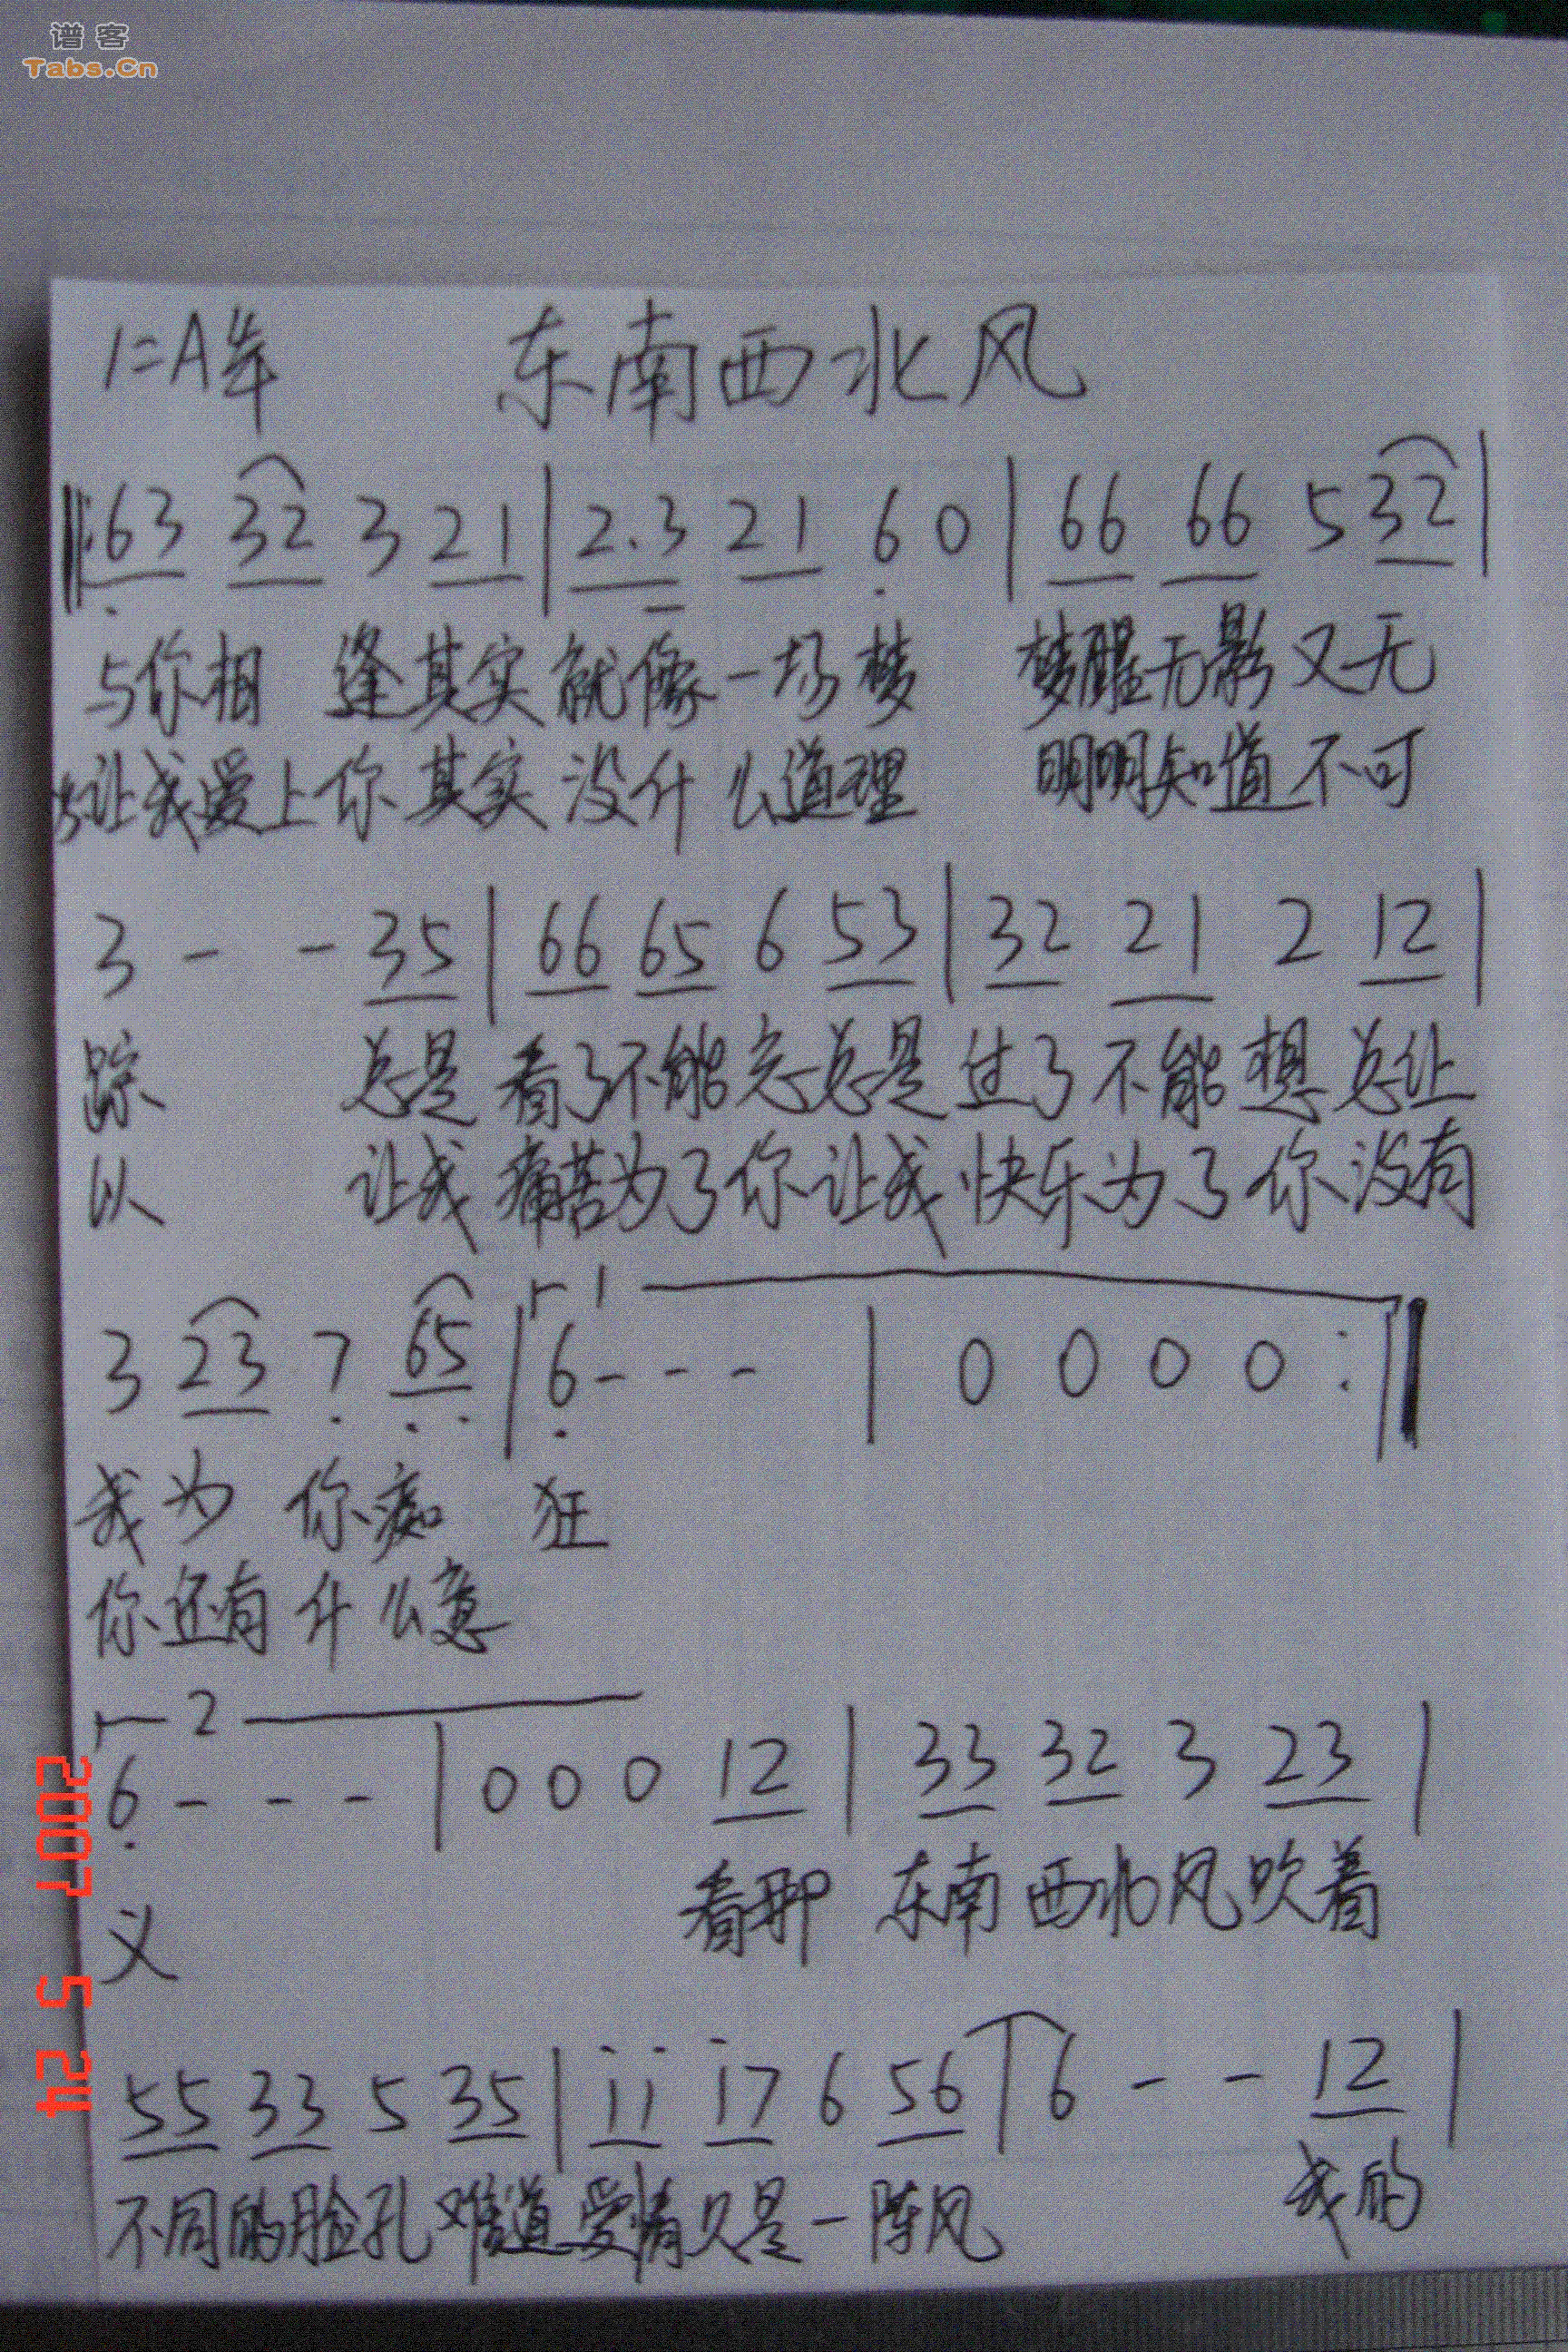 谱客
Tabs.Cn
1=A 4/4 东南西北风
‖:63 32 3 21 | 2.3 21 6 0 | 66 66 5 32 |
与你相 逢其实就像一场梦 梦醒无影又无
让我爱上你其实没什么道理 明明知道不可
3 - - 35 | 66 65 6 53 | 32 21 2 12 |
踪 总是看了不能忘总是过了不能想总让
以 让我痛苦为了你让我快乐为了你没有
1
3 23 7 65 | 6 - - - | 0 0 0 0 :‖
我为 你痴 狂
你还有什么意
2
6 - - - | 0 0 0 12 | 33 32 3 23 |
看那 东南西北风吹着
义
55 33 5 35 | 11 17 6 56 | 6 - - 12 |
不同的脸孔难道爱情只是一阵风 我的
2007 5 24